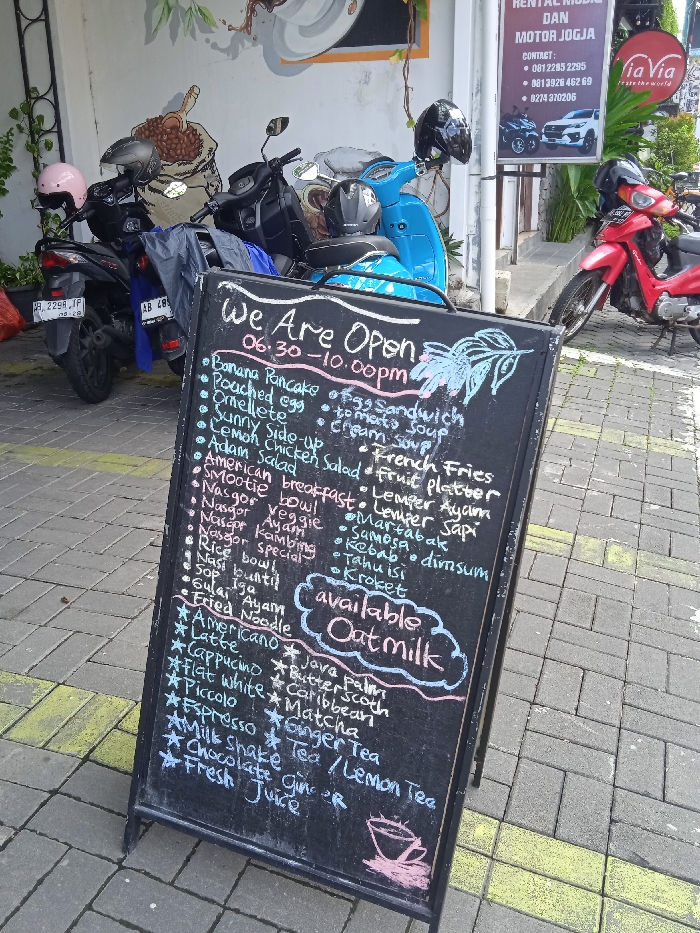 RENTAL MOBIL
DAN
MOTOR JOGJA
CONTACT :
• 081 2295 2295
• 081 3926 462 69
• 0274 370206
ViaVia
taste the world
B 2298
AB
We Are Open
06.30 - 10.00pm
• Banana Pancake
• Pouched egg
• Omellete
• Sunny Side-up
• Lemon Chicken Salad
• Adam Salad
• American breakfast
• Smootie bowl
• Nasgor Veggie
• Nasgor Ayam
• Nasgor Kambing
• Nasgor special
• Rice bowl
• Nasi buntil
• Sop Iga
• Gulai Ayam
• Fried Noodle
• Egg Sandwich
• tomato Soup
• Cream Soup
• French Fries
• Fruit platter
• Lemper Ayam
• Lemper Sapi
• Martabak
• Samosa
• Kebab • dimsum
• Tahu isi
• Kroket
available
Oatmilk
★ Americano
★ Latte
★ Cappucino
★ Flat white
★ Piccolo
★ Espresso
★ Milk Shake
★ Chocolate Ginger
★ Fresh Juice
★ Java Palm
★ Butter Scoth
★ Caribbean
★ Matcha
★ Ginger Tea
★ Tea / Lemon Tea